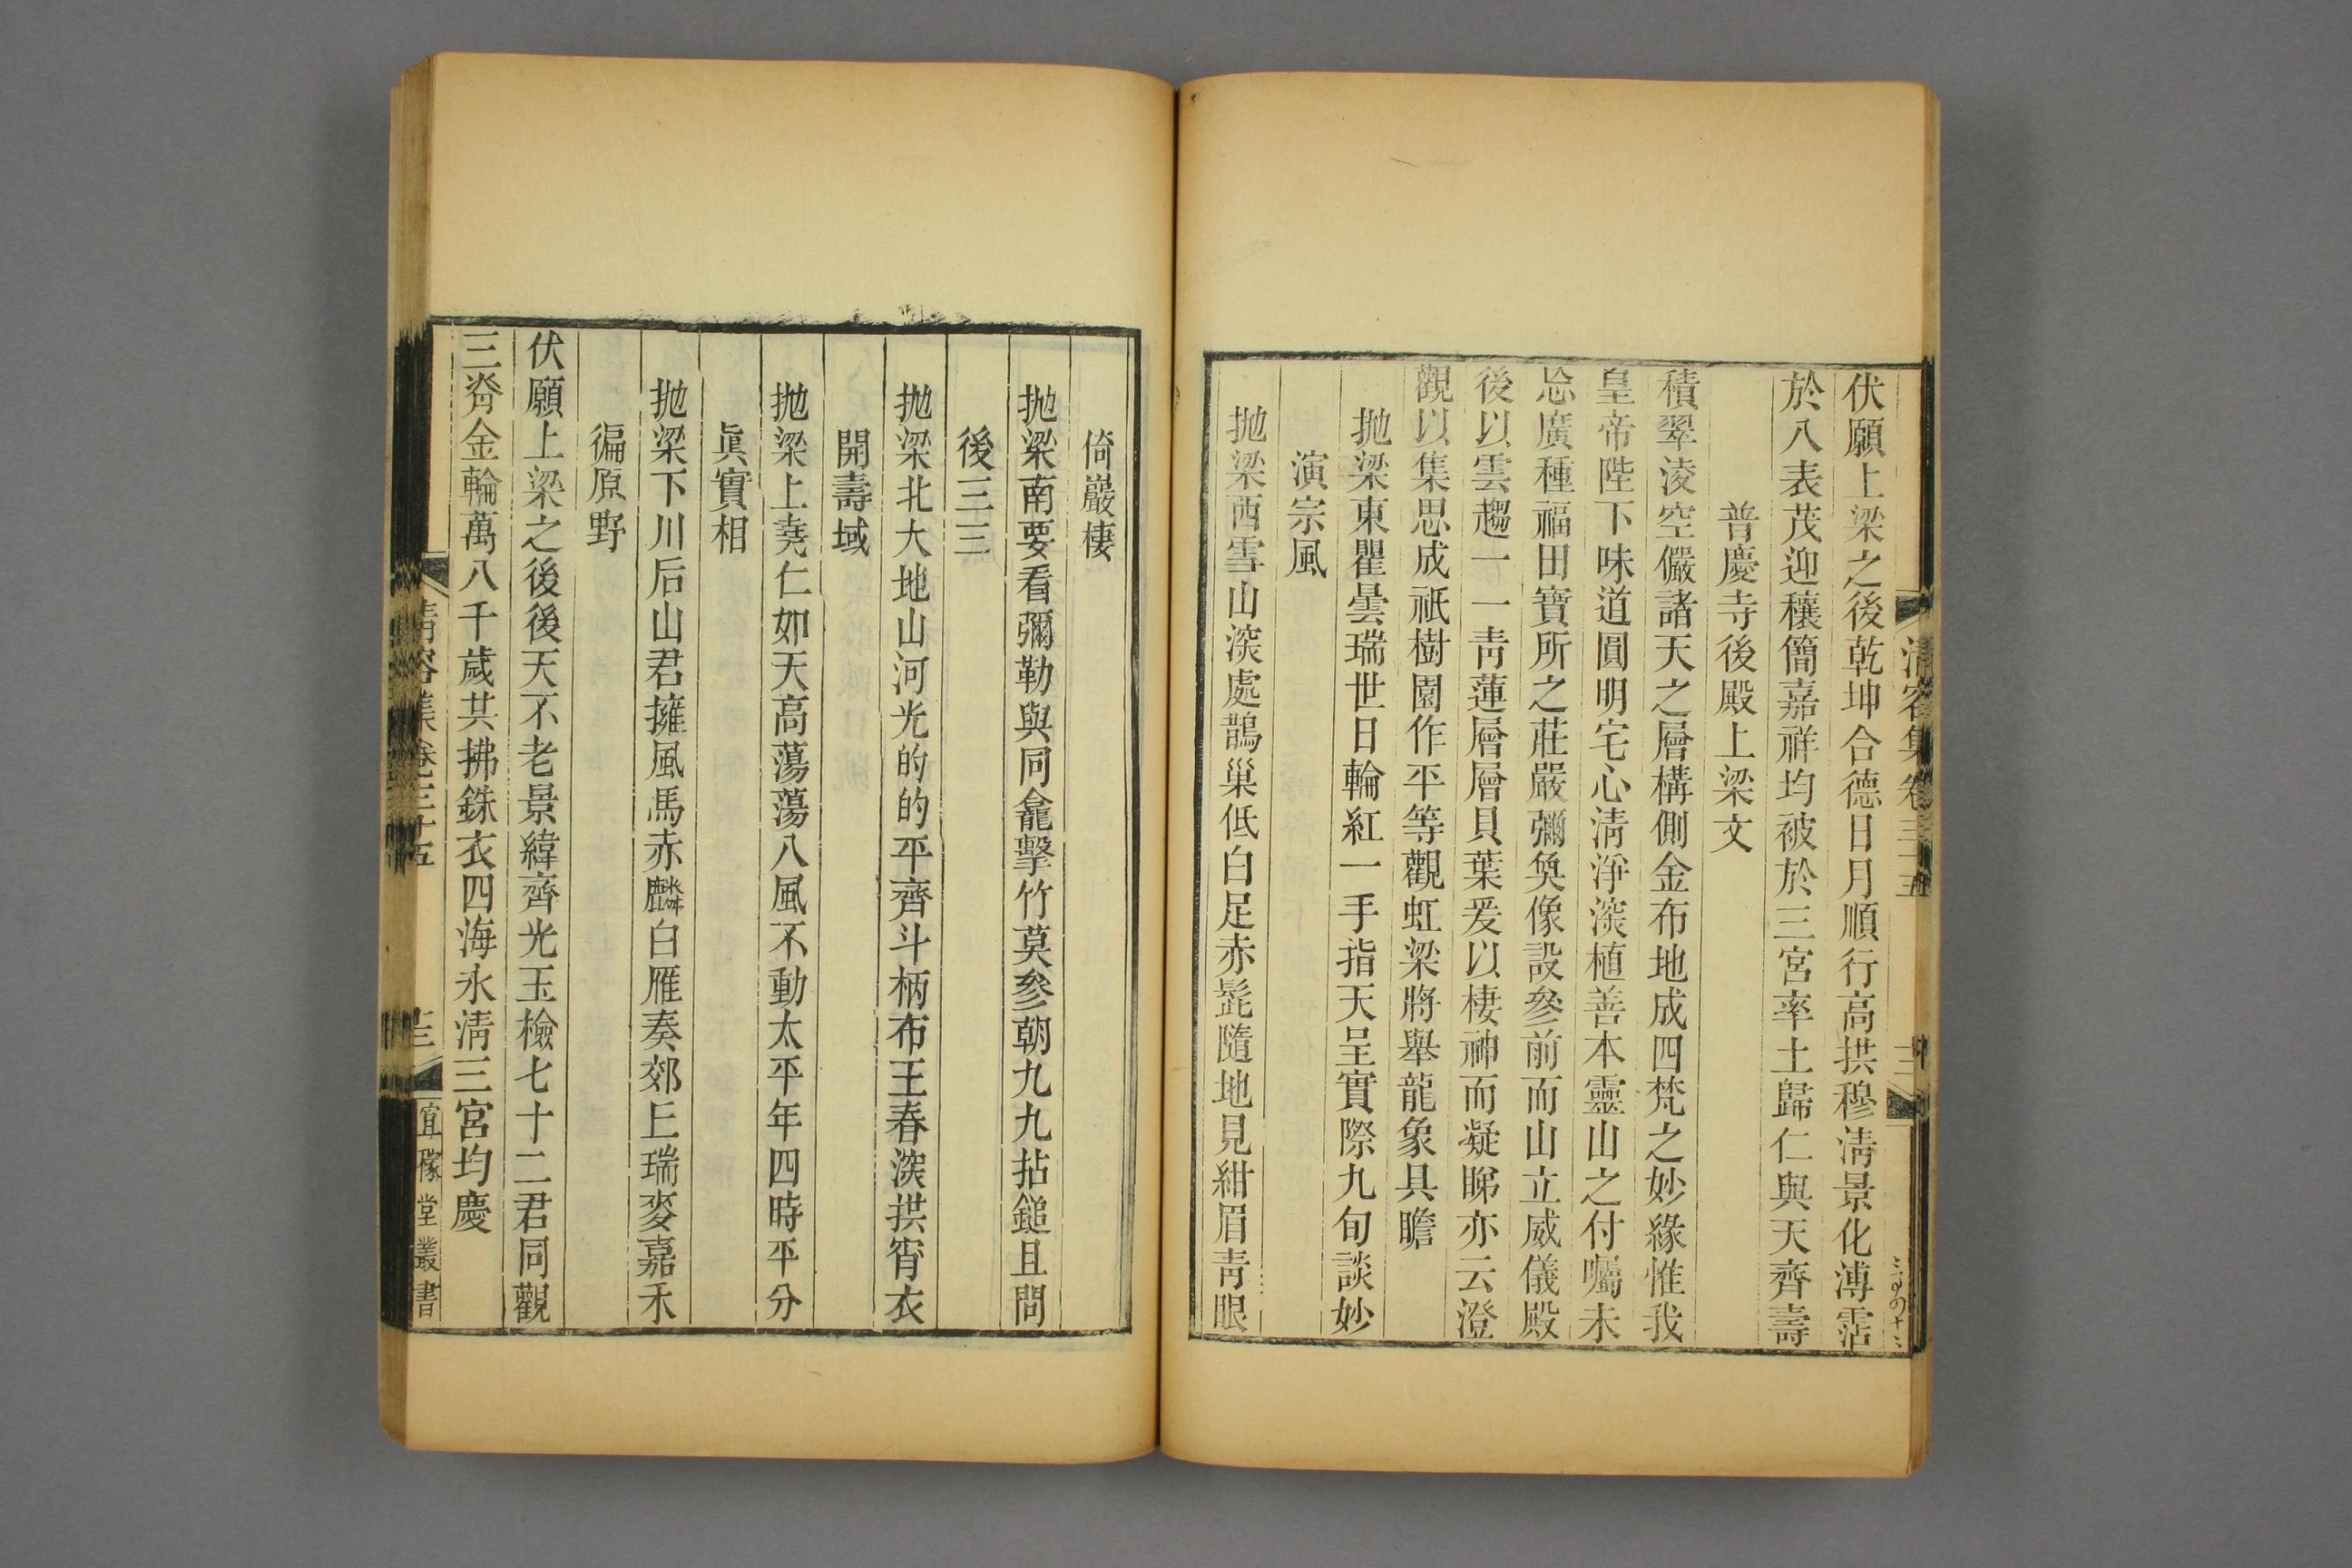 伏願上梁之後乾坤合德日月順行高拱穆淸景化溥霑
於八表茂迎穰簡嘉祥均被於三宮率土歸仁與天齊壽
普慶寺後殿上梁文
積翠淩空儼諸天之層構側金布地成四梵之妙緣惟我
皇帝陛下味道圓明宅心淸淨深植善本靈山之付囑未
忘廣種福田寶所之莊嚴彌奐像設參前而山立威儀殿
後以雲趨一一靑蓮層層貝葉爰以棲神而凝睇亦云澄
觀以集思成祇樹園作平等觀虹梁將舉龍象具瞻
拋梁東瞿曇瑞世日輪紅一手指天呈實際九旬談妙
演宗風
拋梁西雪山深處鵲巢低白足赤髭隨地見紺眉靑眼
倚巖棲
拋梁南要看彌勒與同龕擊竹莫參朝九九拈鎚且問
後三三
拋梁北大地山河光的的平齊斗柄布王春深拱宵衣
開壽域
拋梁上堯仁如天高蕩蕩八風不動太平年四時平分
眞實相
拋梁下川后山君擁風馬赤麟白雁奏郊上瑞麥嘉禾
徧原野
伏願上梁之後後天不老景緯齊光玉檢七十二君同觀
三脊金輪萬八千歲共拂銖衣四海永淸三宮均慶
淸容集卷三十五
宜稼堂叢書